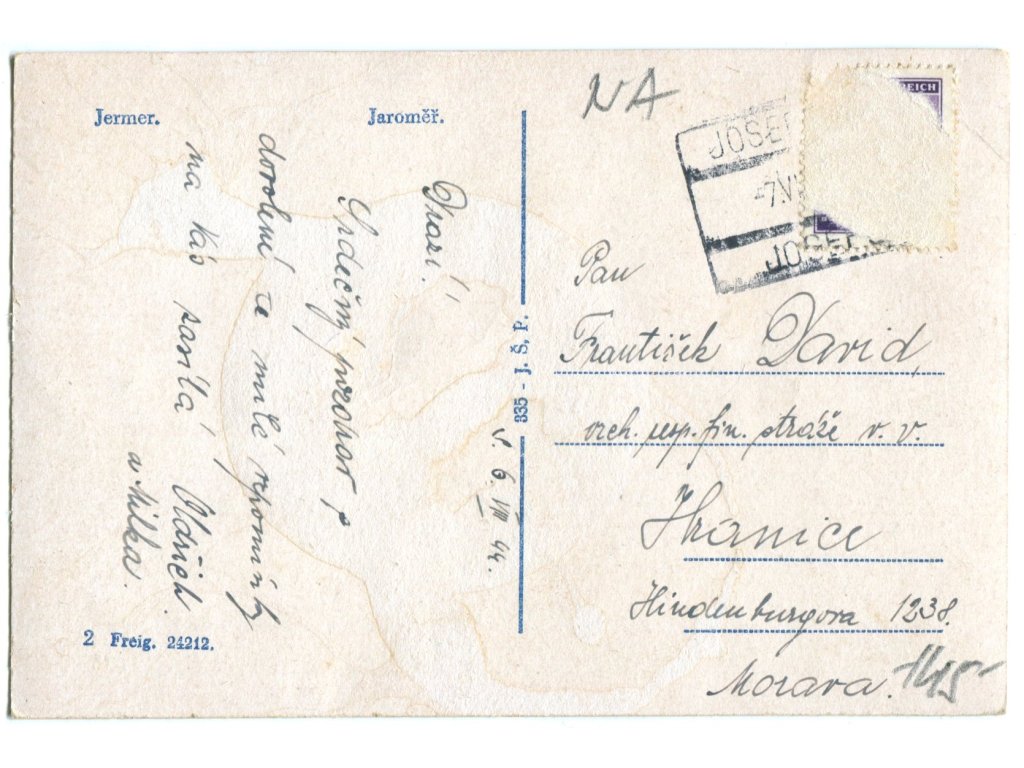 Jermer.
Jaroměř.
Drazí!
Srdečný pozdrav s
dovolené a milé vzpomínky
na Vás posílá Oldřich
a Milka.
6. VIII 44.
335 - J. Š. P.
2 Freig. 24212.
NA
REICH
JOSE
7.V
JOSE
Pan
František David,
vrch. resp. fin. stráže v. v.
Hranice
Hindenburgova 1238.
Morava.